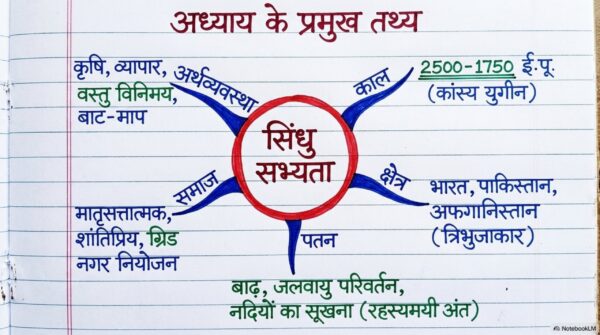 अध्याय के प्रमुख तथ्य
कृषि, व्यापार,
वस्तु विनिमय,
बाट-माप
अर्थव्यवस्था
काल
2500-1750 ई.पू.
(कांस्य युगीन)
सिंधु
सभ्यता
समाज
मातृसत्तात्मक,
शांतिप्रिय, ग्रिड
नगर नियोजन
क्षेत्र
भारत, पाकिस्तान,
अफगानिस्तान
(त्रिभुजाकार)
पतन
बाढ़, जलवायु परिवर्तन,
नदियों का सूखना (रहस्यमयी अंत)
NotebookLM